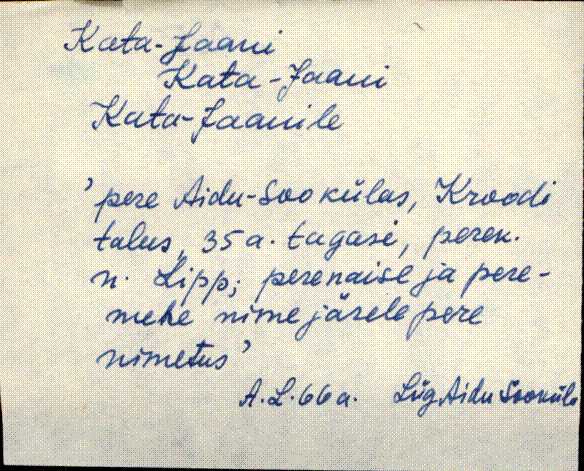 Kata-Jaani
Kata-Jaani
Kata-Jaanile
'pere Aidu-Sookülas, Kroodi
talus, 35 a. tagasi, peren.
n. Lipp; perenaise ja pere-
mehe nime järele pere
nimetus'
A.L. 66 a. Lüg Aidu Sooküla